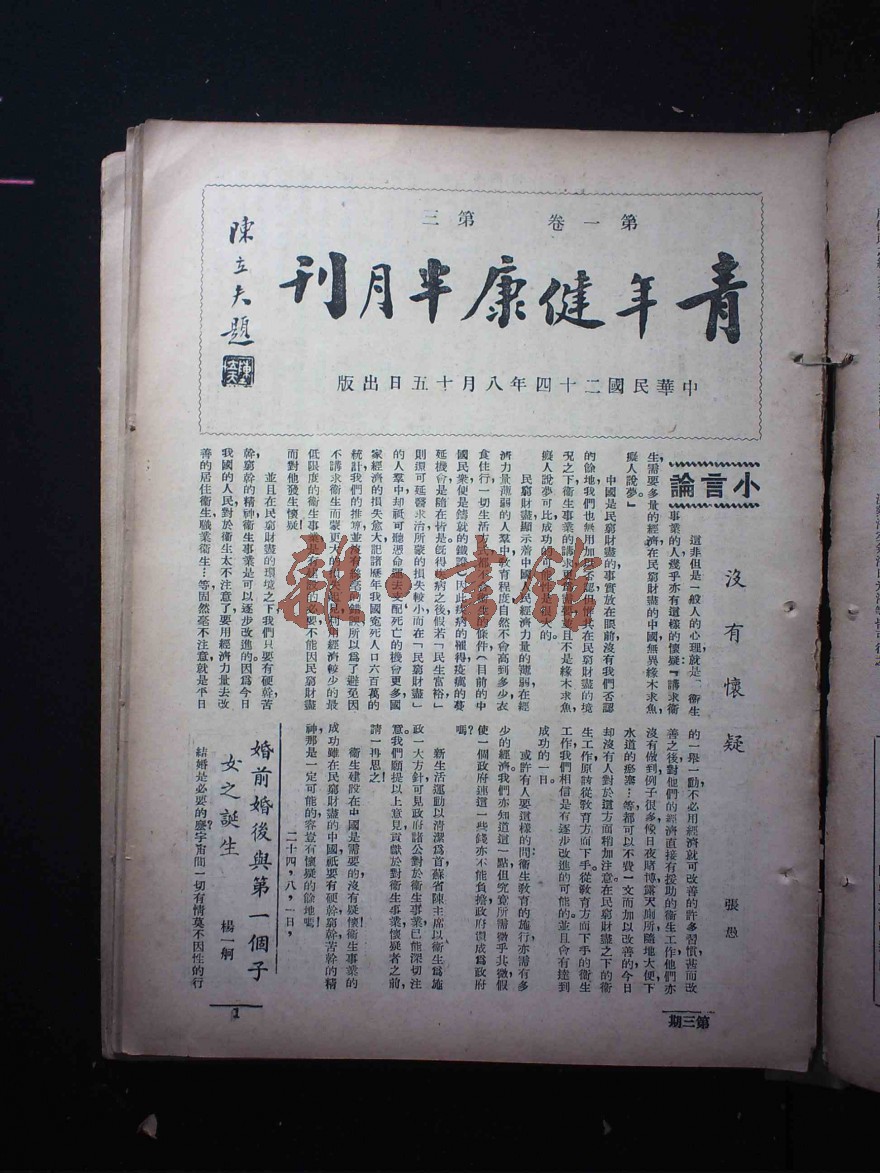 第一卷 第三
青年健康半月刊
中華民國二十四年八月十五日出版
陳立夫題
小言論
沒有懷疑
張愚
這非但是一般人的心理，就是「衞生
事業的人幾乎亦有這樣的懷疑『講求衞
生需要多量的經濟，在民窮財盡的中國無異緣木求魚，
癡人說夢』
中國是民窮財盡的事實放在眼前沒有我們否認
的餘地，我們也無用加以否認，但惟其在民窮財盡的境
況之下，衞生事業的講求更
並且不是緣木求魚
癡人說夢可比，成功的
民窮財盡顯示着中國人民經濟力量的薄弱，在經
濟力量薄弱的人羣中，教育程度當然不會高到多少，衣
食住行一切生活
衞生的條件（目前的中
國民衆便是鑄就的鐵證
的罹得疫癘的蔓
延機會是隨在皆是，旣得疾病之後，假若「民生富裕」
則還可延醫求治，所蒙的損失較小，而在「民窮財盡」
的人羣中却祇可聽憑命運去支配，死亡的機會更多，國
家經濟的損失愈大，記諸歷年我國冤死人口六百萬的
統計，我們的推算並沒有
錯誤，所以爲了避免因
不講求衞生而蒙更大的損失
利用經濟較少的最
低限度的衞生事業是有建設的必要，不能因民窮財盡
而對他發生懷疑！
並且在民窮財盡的環境之下，我們只要有硬幹苦
幹窮幹的精神，衞生事業是可以逐步改進的，因爲今日
我國的人民對於衞生太不注意了，要用經濟力量去改
善的居住衞生，職業衞生…等固然毫不注意，就是平日
的一舉一動不必用經濟就可改善的許多習慣，甚而改
善之後對他們的經濟直接有援助的衞生工作，他們亦
沒有做到，例子很多，候日夜賭博，露天廁所，隨地大便，下
水道的瘀塞…等都可以不費一文而加以改善的，今日
却沒有人對於這方面稍加注意，在民窮財盡之下的衞
生工作原該從敎育方面下手，從敎育方面下手的衞生
工作，我們相信是有逐步改進的可能的，並且會有達到
成功的一日。
或許有人要這樣的問，衞生敎育的施行亦需有多
少的經濟，我們亦知道這一點，但究竟所需微乎其微，假
使一個政府連這一些錢亦不能負擔，政府慣成爲政府
嗎？
新生活運動以清潔爲首，蘇省陳主席以衞生爲施
政一大方針，可見政府諸公對於衞生事業已能深切注
意，我們願提以上意見貢獻於對衞生事業懷疑者之前，
請一再思之！
衞生建設在中國是需要的，沒有疑懷，衞生事業的
成功雖在民窮財盡的中國，祇要有硬幹窮幹苦幹的精
神，那是一定可能的，容豈有懷疑的餘地嗎！
二十四，八，一日，
婚前婚後與第一個子
女之誕生
楊一舸
結婚是必要的？塵宇宙間一切有情莫不因性的行
1
第三期
雜·書館